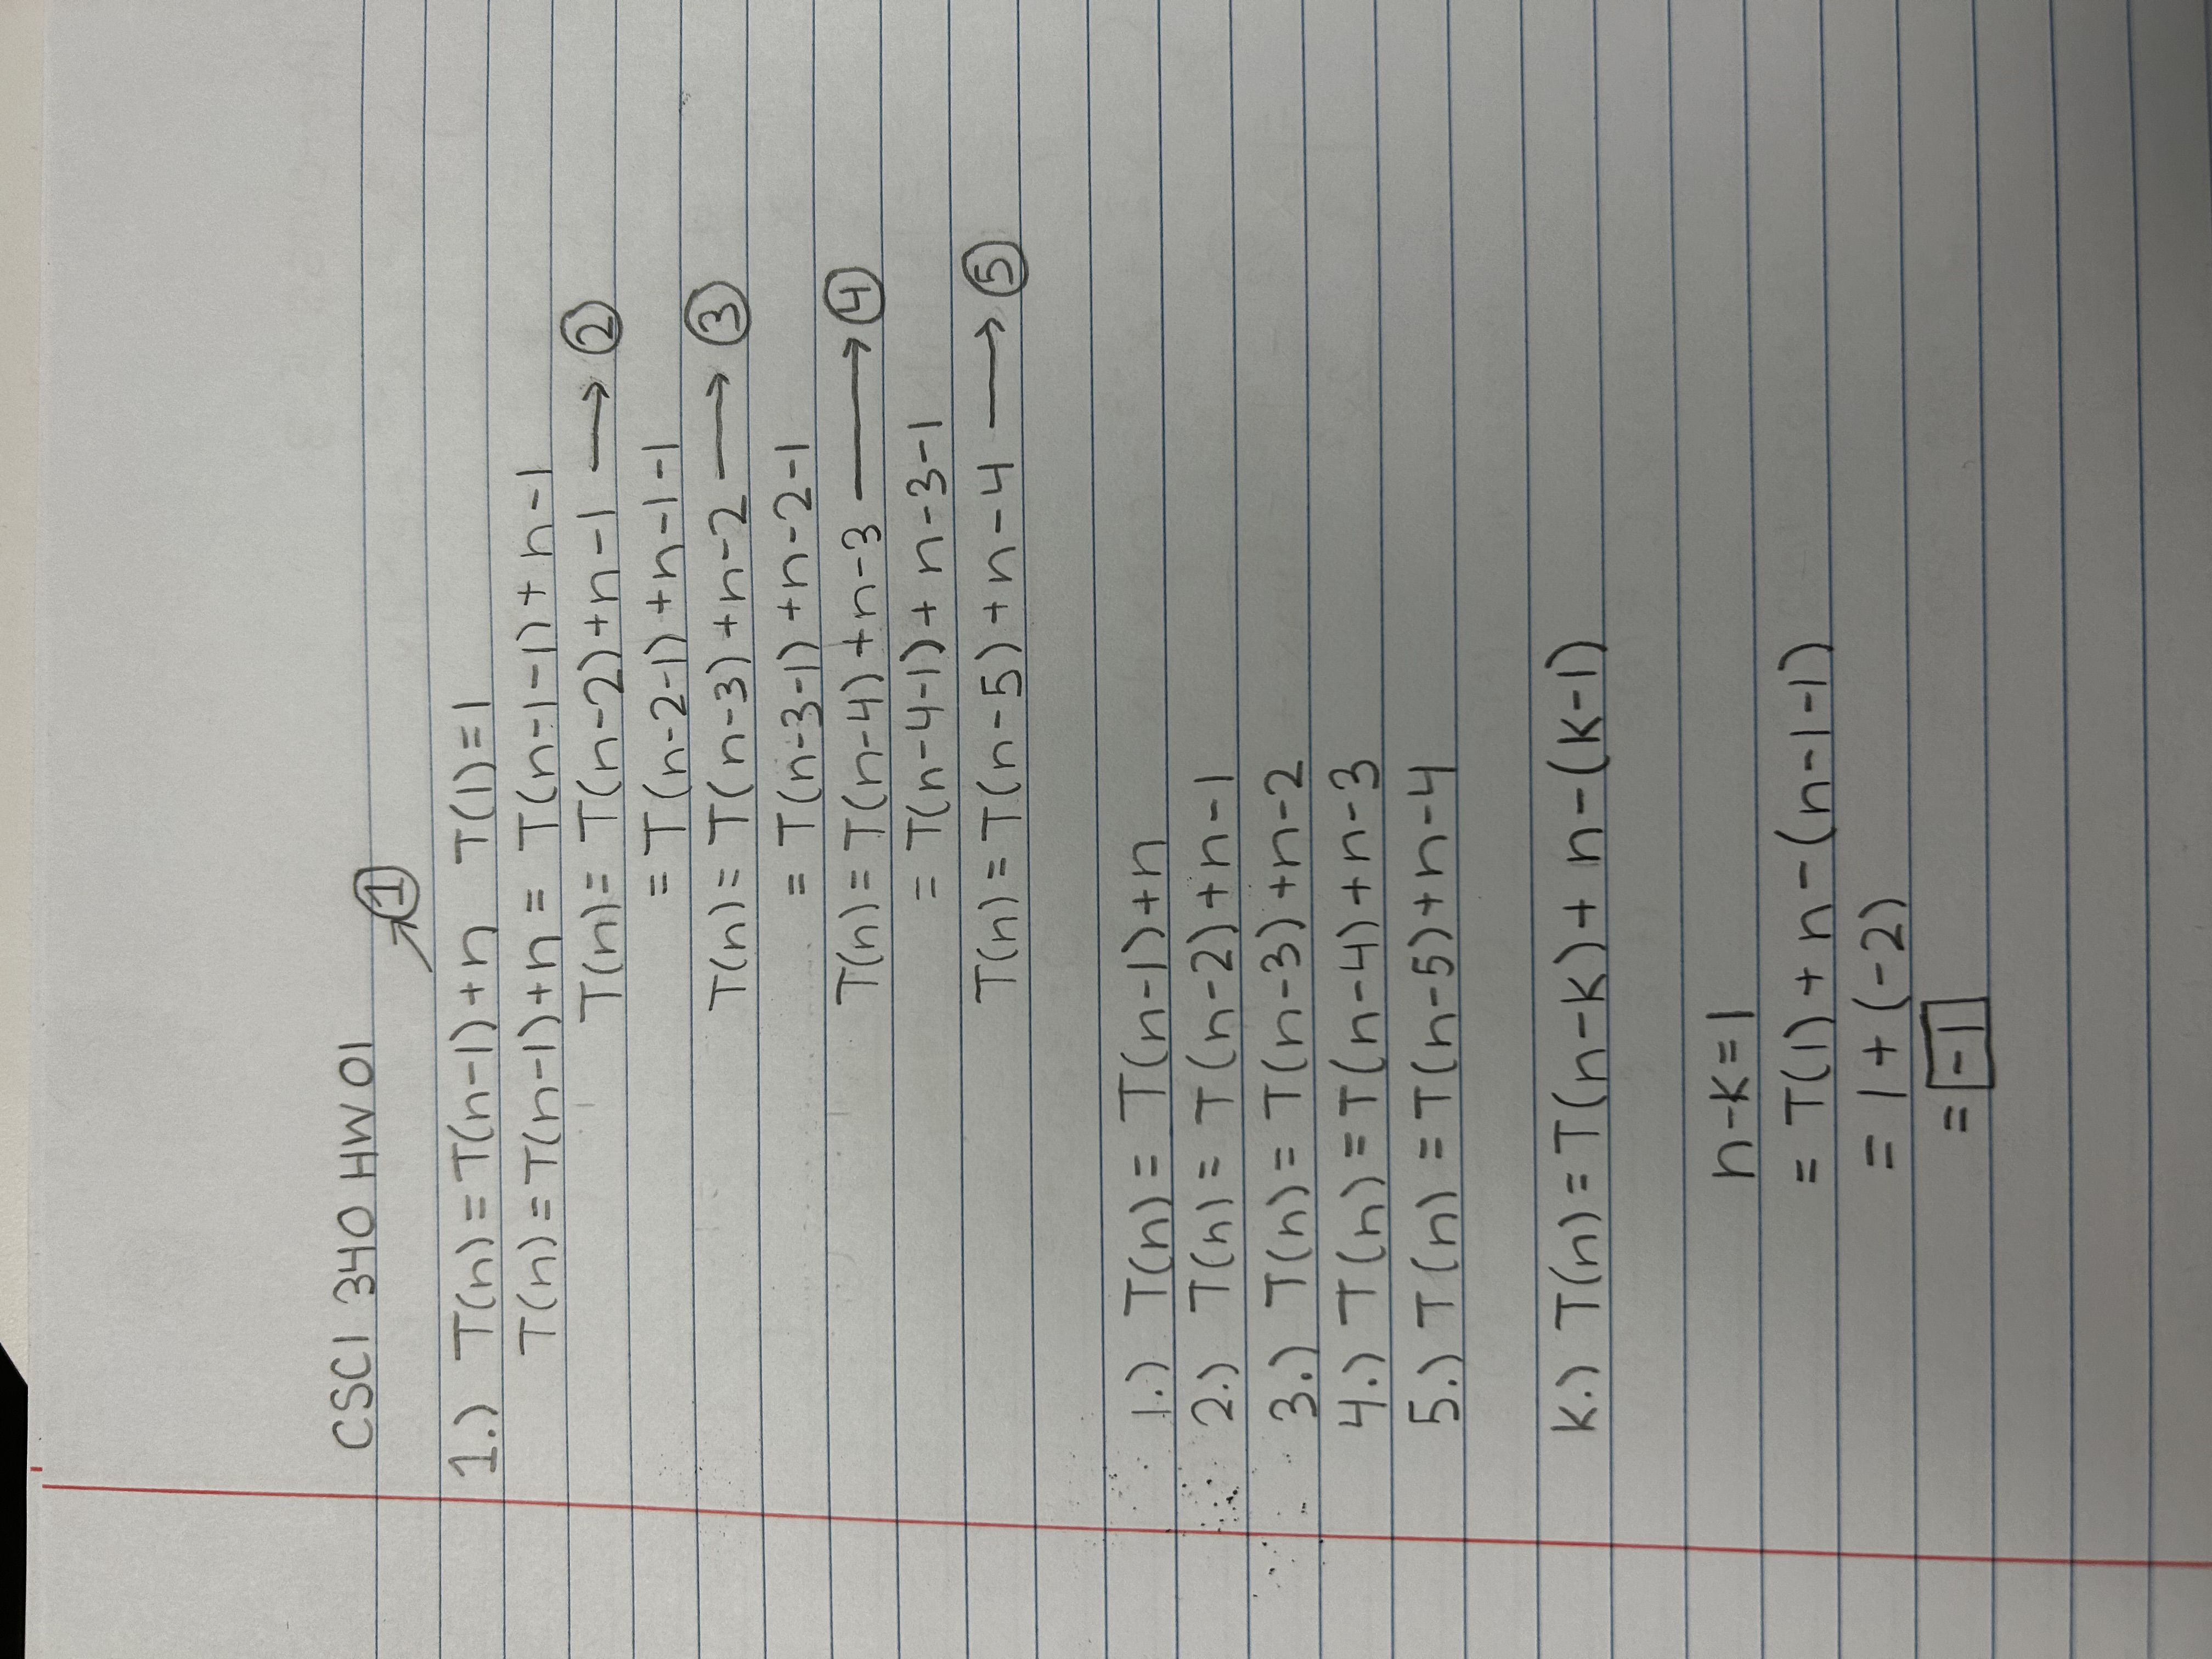 CSCI 340 HW 01
①
1.) T(n) = T(n-1) + n T(1) = 1
T(n) = T(n-1) + n = T(n-1-1) + n-1
T(n) = T(n-2) + n-1 → ②
= T(n-2-1) + n-1-1
T(n) = T(n-3) + n-2 → ③
= T(n-3-1) + n-2-1
T(n) = T(n-4) + n-3 → ④
= T(n-4-1) + n-3-1
T(n) = T(n-5) + n-4 → ⑤
1.) T(n) = T(n-1) + n
2.) T(n) = T(n-2) + n-1
3.) T(n) = T(n-3) + n-2
4.) T(n) = T(n-4) + n-3
5.) T(n) = T(n-5) + n-4
K.) T(n) = T(n-K) + n-(K-1)
n-K = 1
= T(1) + n-(n-1-1)
= 1 + (-2)
= -1